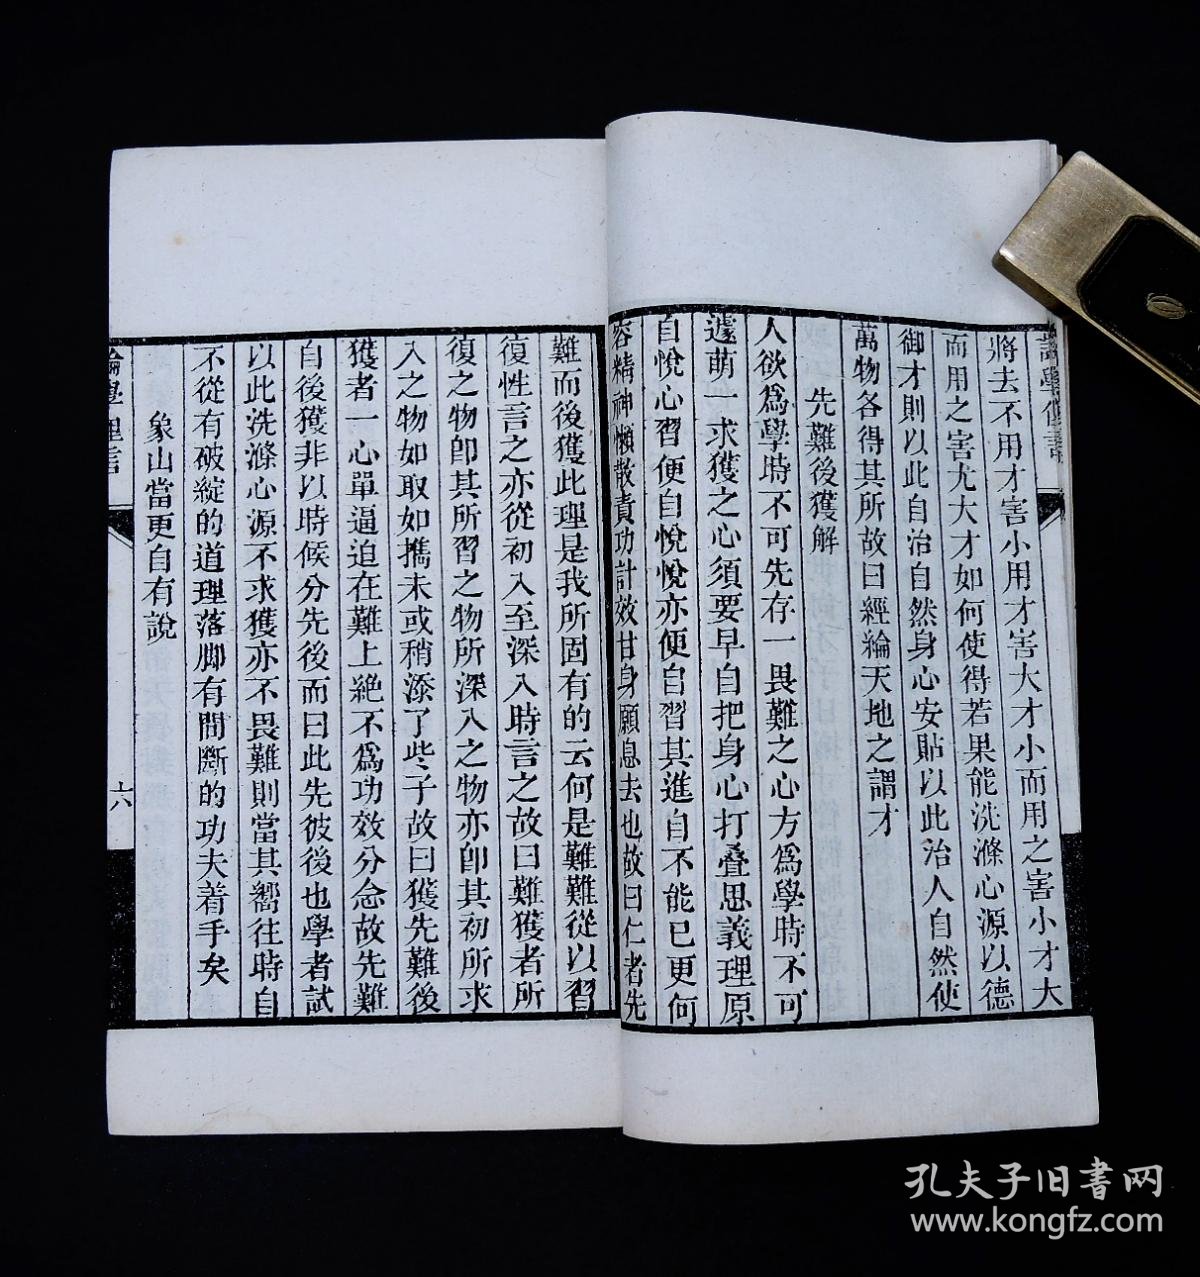 將去不用才害小用才害大才小而用之害小才大
而用之害尤大才如何使得若果能洗滌心源以德
御才則以此自治自然身心安貼以此治人自然使
萬物各得其所故曰經綸天地之謂才
先難後獲解
人欲爲學時不可先存一畏難之心方爲學時不可
遽萌一求獲之心須要早自把身心打疊思義理原
自悅心習便自悅悅亦便自習其進自不能已更何
容精神懶散責功計效甘身願息去也故曰仁者先
難而後獲此理是我所固有的云何是難難從以習
復性言之亦從初入至深入時言之故曰難獲者所
復之物卽其所習之物所深入之物亦卽其初所求
入之物如取如攜未或稍添了些子故曰獲先難後
獲者一心單逼迫在難上絕不爲功效分念故先難
自後獲非以時候分先後而曰此先彼後也學者試
以此洗滌心源不求獲亦不畏難則當其嚮往時自
不從有破綻的道理落脚有間斷的功夫着手矣
象山當更自有說
六
孔夫子旧书网
www.kongfz.com